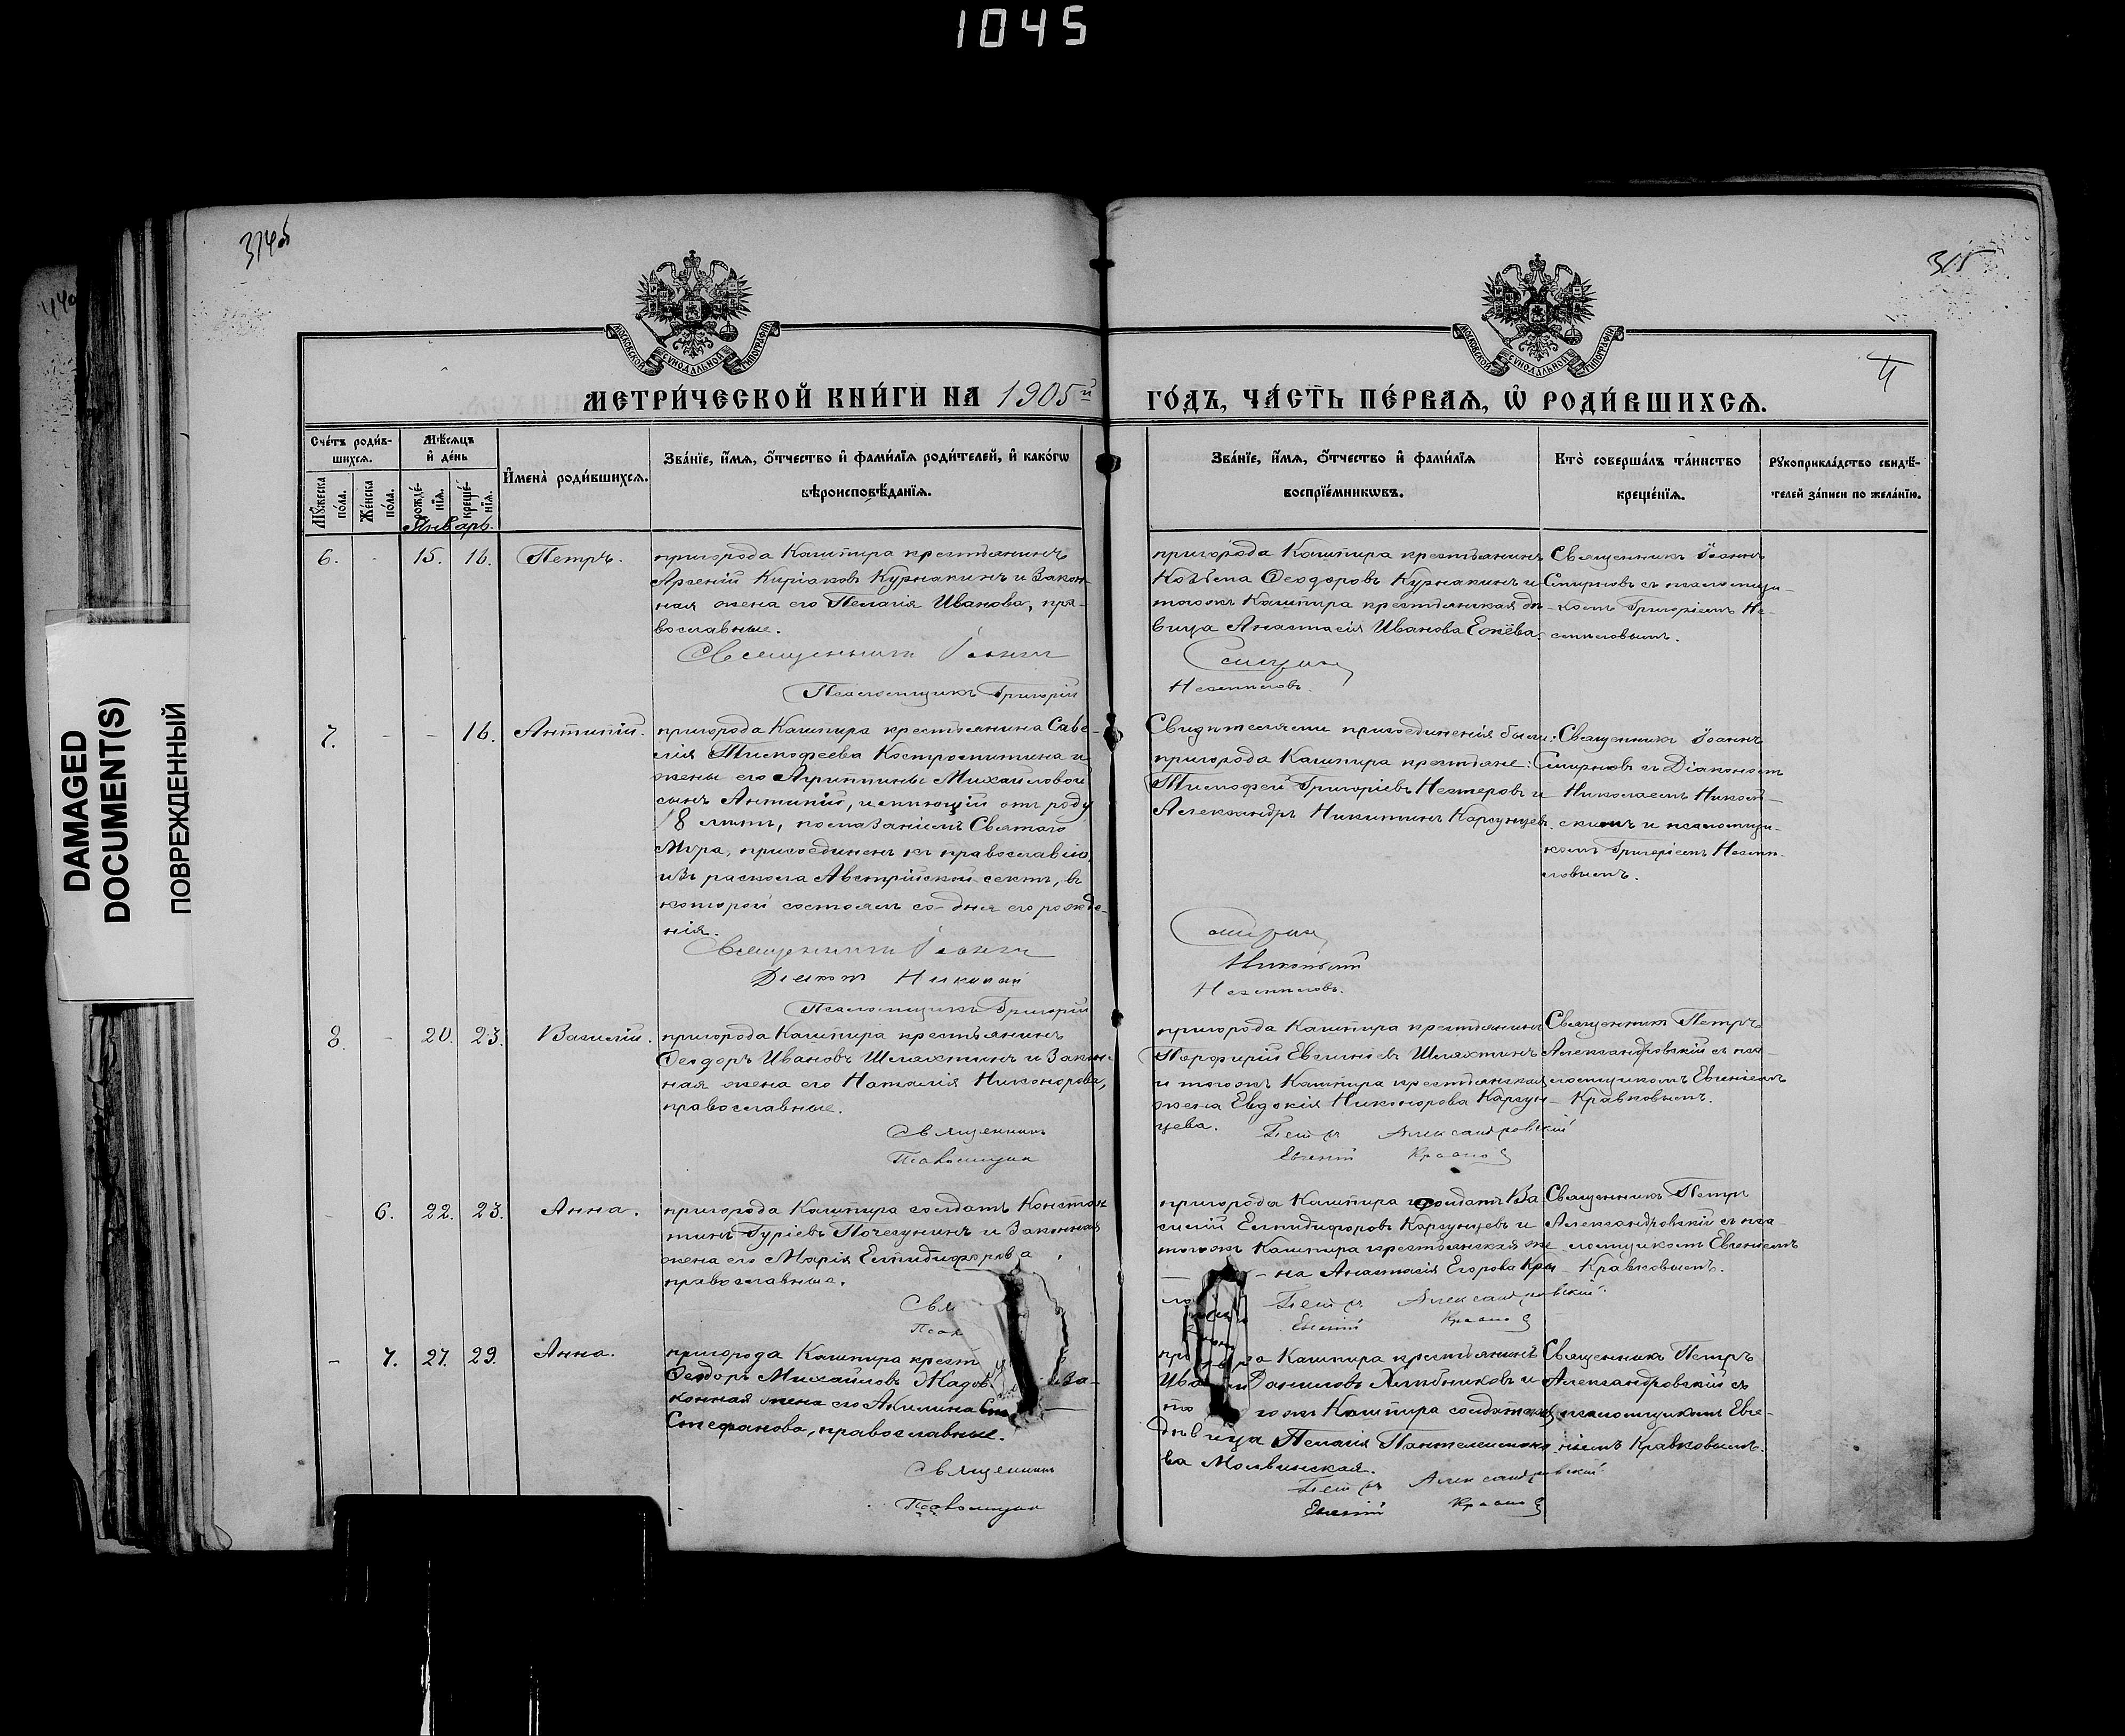 1045
DAMAGED
DOCUMENT(S)
ПОВРЕЖДЕННЫЙ
315
4
МОСКОВСКОЙ СѴНОДАЛЬНОЙ ТИПОГРАФІИ
МОСКОВСКОЙ СѴНОДАЛЬНОЙ ТИПОГРАФІИ
МЕТРИ́ЧЕСКОЙ КНИ́ГИ НА 1905й
ГО́ДЪ, ЧА́СТЬ ПЕ́РВАѦ, Ѡ҆ РОДИ́ВШИХСѦ.
Сче́тъ роди́в-
шихсѧ.
Мѣ́сѧцъ
и҆ де́нь
Мꙋ́жеска
по́ла.
Же́нска
по́ла.
рожде́-
нїѧ.
креще́-
нїѧ.
Январь.
И҆мена̀ роди́вшихсѧ.
Зва́нїе, и҆́мѧ, ѻ҆́тчество и҆ фами́лїѧ роди́телей, и҆ како́гѡ
вѣроисповѣ́данїѧ.
Зва́нїе, и҆́мѧ, ѻ҆́тчество и҆ фами́лїѧ
воспрїе́мникѡвъ.
Кто̀ соверша́лъ та́инство
креще́нїѧ.
Рꙋкоприкла́дство свидѣ́-
телей за́писи по жела́нїю.
6. - 15. 16. Петръ.
пригорода Кашпира крестьянинъ
Арсеній Киріаковъ Курнакинъ и закон-
ная жена его Пелагія Иванова, пра-
вославные.
Священникъ Іоаннъ
Псаломщикъ Григорій
пригорода Кашпира крестьянинъ
Козьма Ѳеодоровъ Курнакинъ и
тогожъ Кашпира крестьянская дѣ-
вица Анастасія Иванова Ежёва.
Смирнов
Священникъ Іоаннъ
Смирновъ съ псаломщи-
комъ Григоріемъ
7. - - 16. Антипій.
пригорода Кашпира крестьянина Саве-
лія Тимофеева Костромитина и
жены его Агриппины Михайловой
сынъ Антипій, имѣющій отъ роду
18 лѣтъ, помазаніемъ Святаго
Мѵра, присоединенъ къ православію,
изъ раскола Австрійской секты, въ
которой состоялъ со дня его рожде-
нія.
Священникъ Іоаннъ
Діаконъ Николай
Псаломщикъ Григорій
Свидѣтелями присоединенія были:
пригорода Кашпира крестьяне:
Тимофей Григоріевъ Нестеровъ и
Александръ Никитинъ Карсунцевъ.
Смирнов
Никольскій
Священникъ Іоаннъ
Смирновъ съ Діакономъ
Николаемъ Николь-
скимъ и псаломщи-
комъ Григоріемъ
8. - 20. 23. Василій.
пригорода Кашпира крестьянинъ
Ѳеодоръ Ивановъ Шляхтинъ и закон-
ная жена его Наталія Никонорова,
православные.
Священникъ
Псаломщикъ
пригорода Кашпира крестьянинъ
Порфирій Евгеніевъ Шляхтинъ
и тогожъ Кашпира крестьянская
жена Евдокія Никонорова Карсун-
цева.
Петръ Александровскій
Евгеній Кравков
Священникъ Петръ
Александровскій съ пса-
ломщикомъ Евгеніемъ
Кравковымъ.
- 6. 22. 23. Анна.
пригорода Кашпира солдатъ Констан
тинъ Гуріевъ Почезунинъ и законная
жена его Марія Елпидифорова,
православные.
Свя
Псал
пригорода Кашпира солдатъ Ва
силій Елпидифоровъ Карсунцевъ и
тогожъ Кашпира крестьянская же
- на Анастасія Егорова
Петръ Александровскій
Евгеній Кравков
Священникъ Петръ
Александровскій съ пса
ломщикомъ Евгеніемъ
Кравковымъ.
- 7. 27. 29. Анна.
пригорода Кашпира крест
Ѳеодоръ Михайловъ и за-
конная жена его Акилина
Стефанова, православные.
Священникъ
Псаломщикъ
Кашпира крестьянинъ
Даниловъ Хлѣбниковъ и
Кашпира солдатская
дѣвица Пелагія Пантелеимоно
ва Молвинская.
Петръ Александровскій
Евгеній Кравков
Священникъ Петръ
Александровскій съ
псаломщикомъ Евге-
ніемъ Кравковымъ.